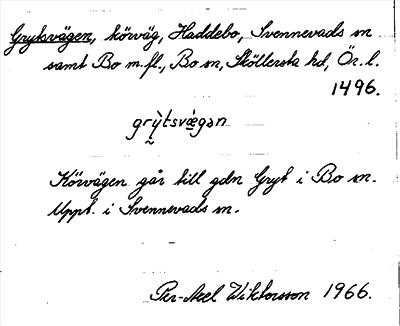 Grytsvägen, körväg, Haddebo, Svennevads sn
samt Bo m.fl., Bo sn, Sköllersta hd, Ör. l.
1496.
grỳtsvä̀gən
Körvägen går till gdn Gryt i Bo sn.
Uppt. i Svennevads sn.
Per-Axel Wiktorsson 1966.